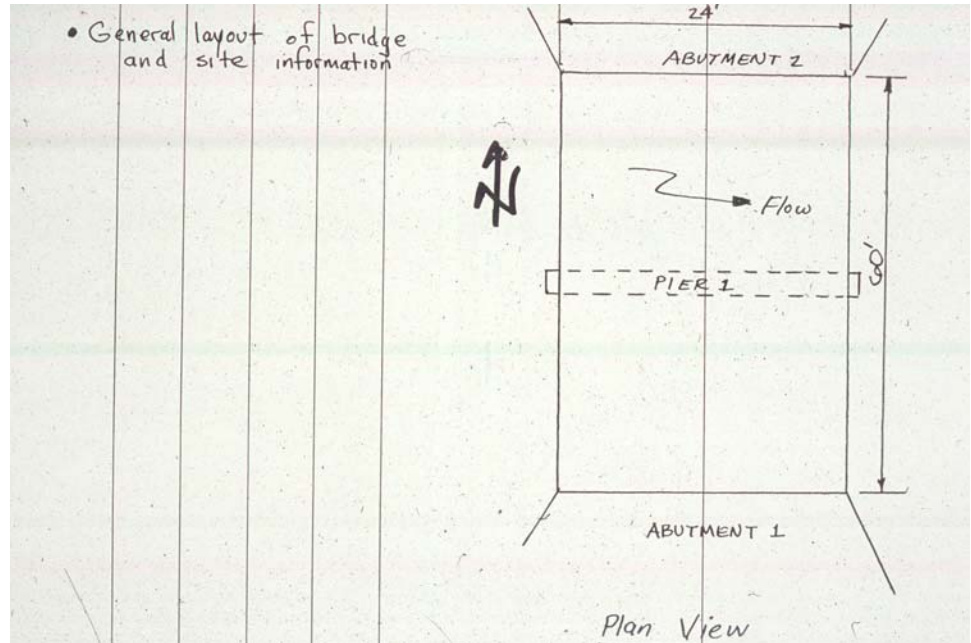 24'
• General layout of bridge
and site information
ABUTMENT 2
N
Flow
PIER 1
ABUTMENT 1
Plan View